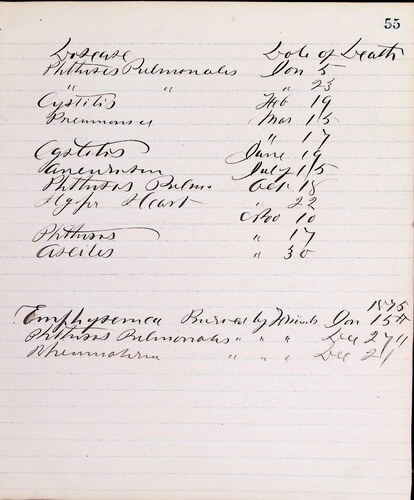 55
Disease Date of Death
Phthisis Pulmonalis Jan 5
" " " 23
Cystitis Feb 19
Pneumonia Mar 15
" 17
Cystitis June 19
Aneurism July 15
Phthisis Pulmo Oct 18
Hypr Heart " 22
Nov 10
Phthisis " 17
Ascites " 30
1875
Emphysemea Buried by Friends Jan 15th
Phthisis Pulmonalis " " " Dec 27th
Rheumatism " " " Dec 21